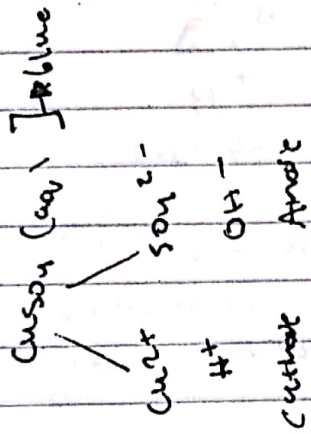 CuSO4 (aq) ] blue
Cu2+ SO4 2-
H+ OH-
Cathode Anode